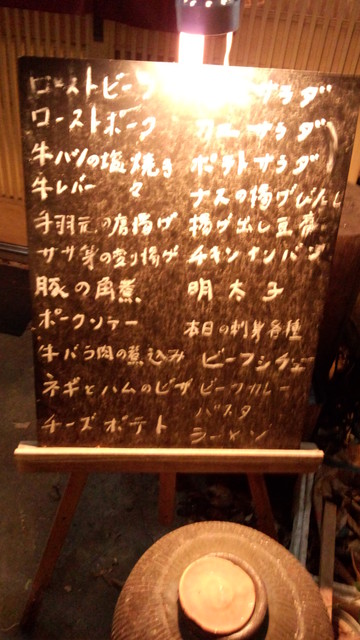 ローストビーフ
ローストポーク
牛ハツの塩焼き
牛レバー 々
手羽元の唐揚げ
ササ身の変り揚げ
豚の角煮
ポークソテー
牛バラ肉の煮込み
ネギとハムのピザ
チーズポテト
サラダ
サラダ
ポテトサラダ
ナスの揚げびたし
揚げ出し豆腐
チキンナンバン
明太子
本日の刺身各種
ビーフシチュー
ビーフカレー
パスタ
ラーメン